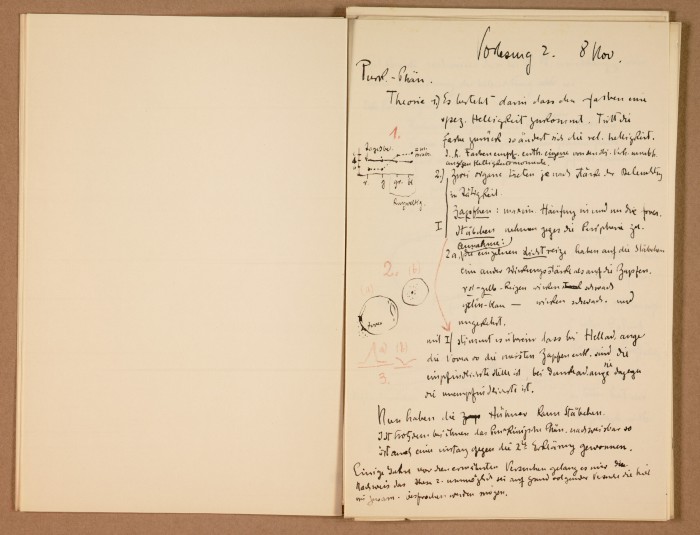 Vorlesung 2. 8 Nov.
Purk. - Phän.
Theorie 1) Es besteht darin dass den Farben eine
spez. Helligkeit zukommt. Tritt die
Farbe zurück so ändert sich die rel. Helligkeit.
d. h. Farbenempf. enth. eigene von den
1.
r g gr bl
2.) Zwei Organe treten je nach Stärke der Beleuchtung
in Tätigkeit.
Zapfen : maxim. Häufung in und um die fovea.
I Stäbchen nehmen gegen die Peripherie zu.
Annahme:
2a. die einzelnen Lichtreize haben auf die Stäbchen
eine andere Wirkungsstärke als auf die Zapfen.
rot-gelb-Reizen wirken schwach
grün-blau — wirken schwach und
umgekehrt.
2. (b)
(a)
fovea
1 a) (b)
3.
mit I stimmt es überein dass bei Hellad. auge
die Fovea wo die meisten Zapfen enth. sind die
empfindlichste Stelle ist bei Dunkelad. auge sie dagegen
die unempfindlichste ist.
Nun haben die Hühner kaum Stäbchen.
Ist trotzdem bei ihnen das Purkinjesche Phän. nachweisbar so
ist auch eine Instanz gegen die 2te Erklärung gewonnen.
Einige Jahre vor den erwähnten Versuchen gelang es mir den
Nachweis das unmöglich sei auf Grund folgender Versuche die hier
im Zusam. besprochen werden mögen.